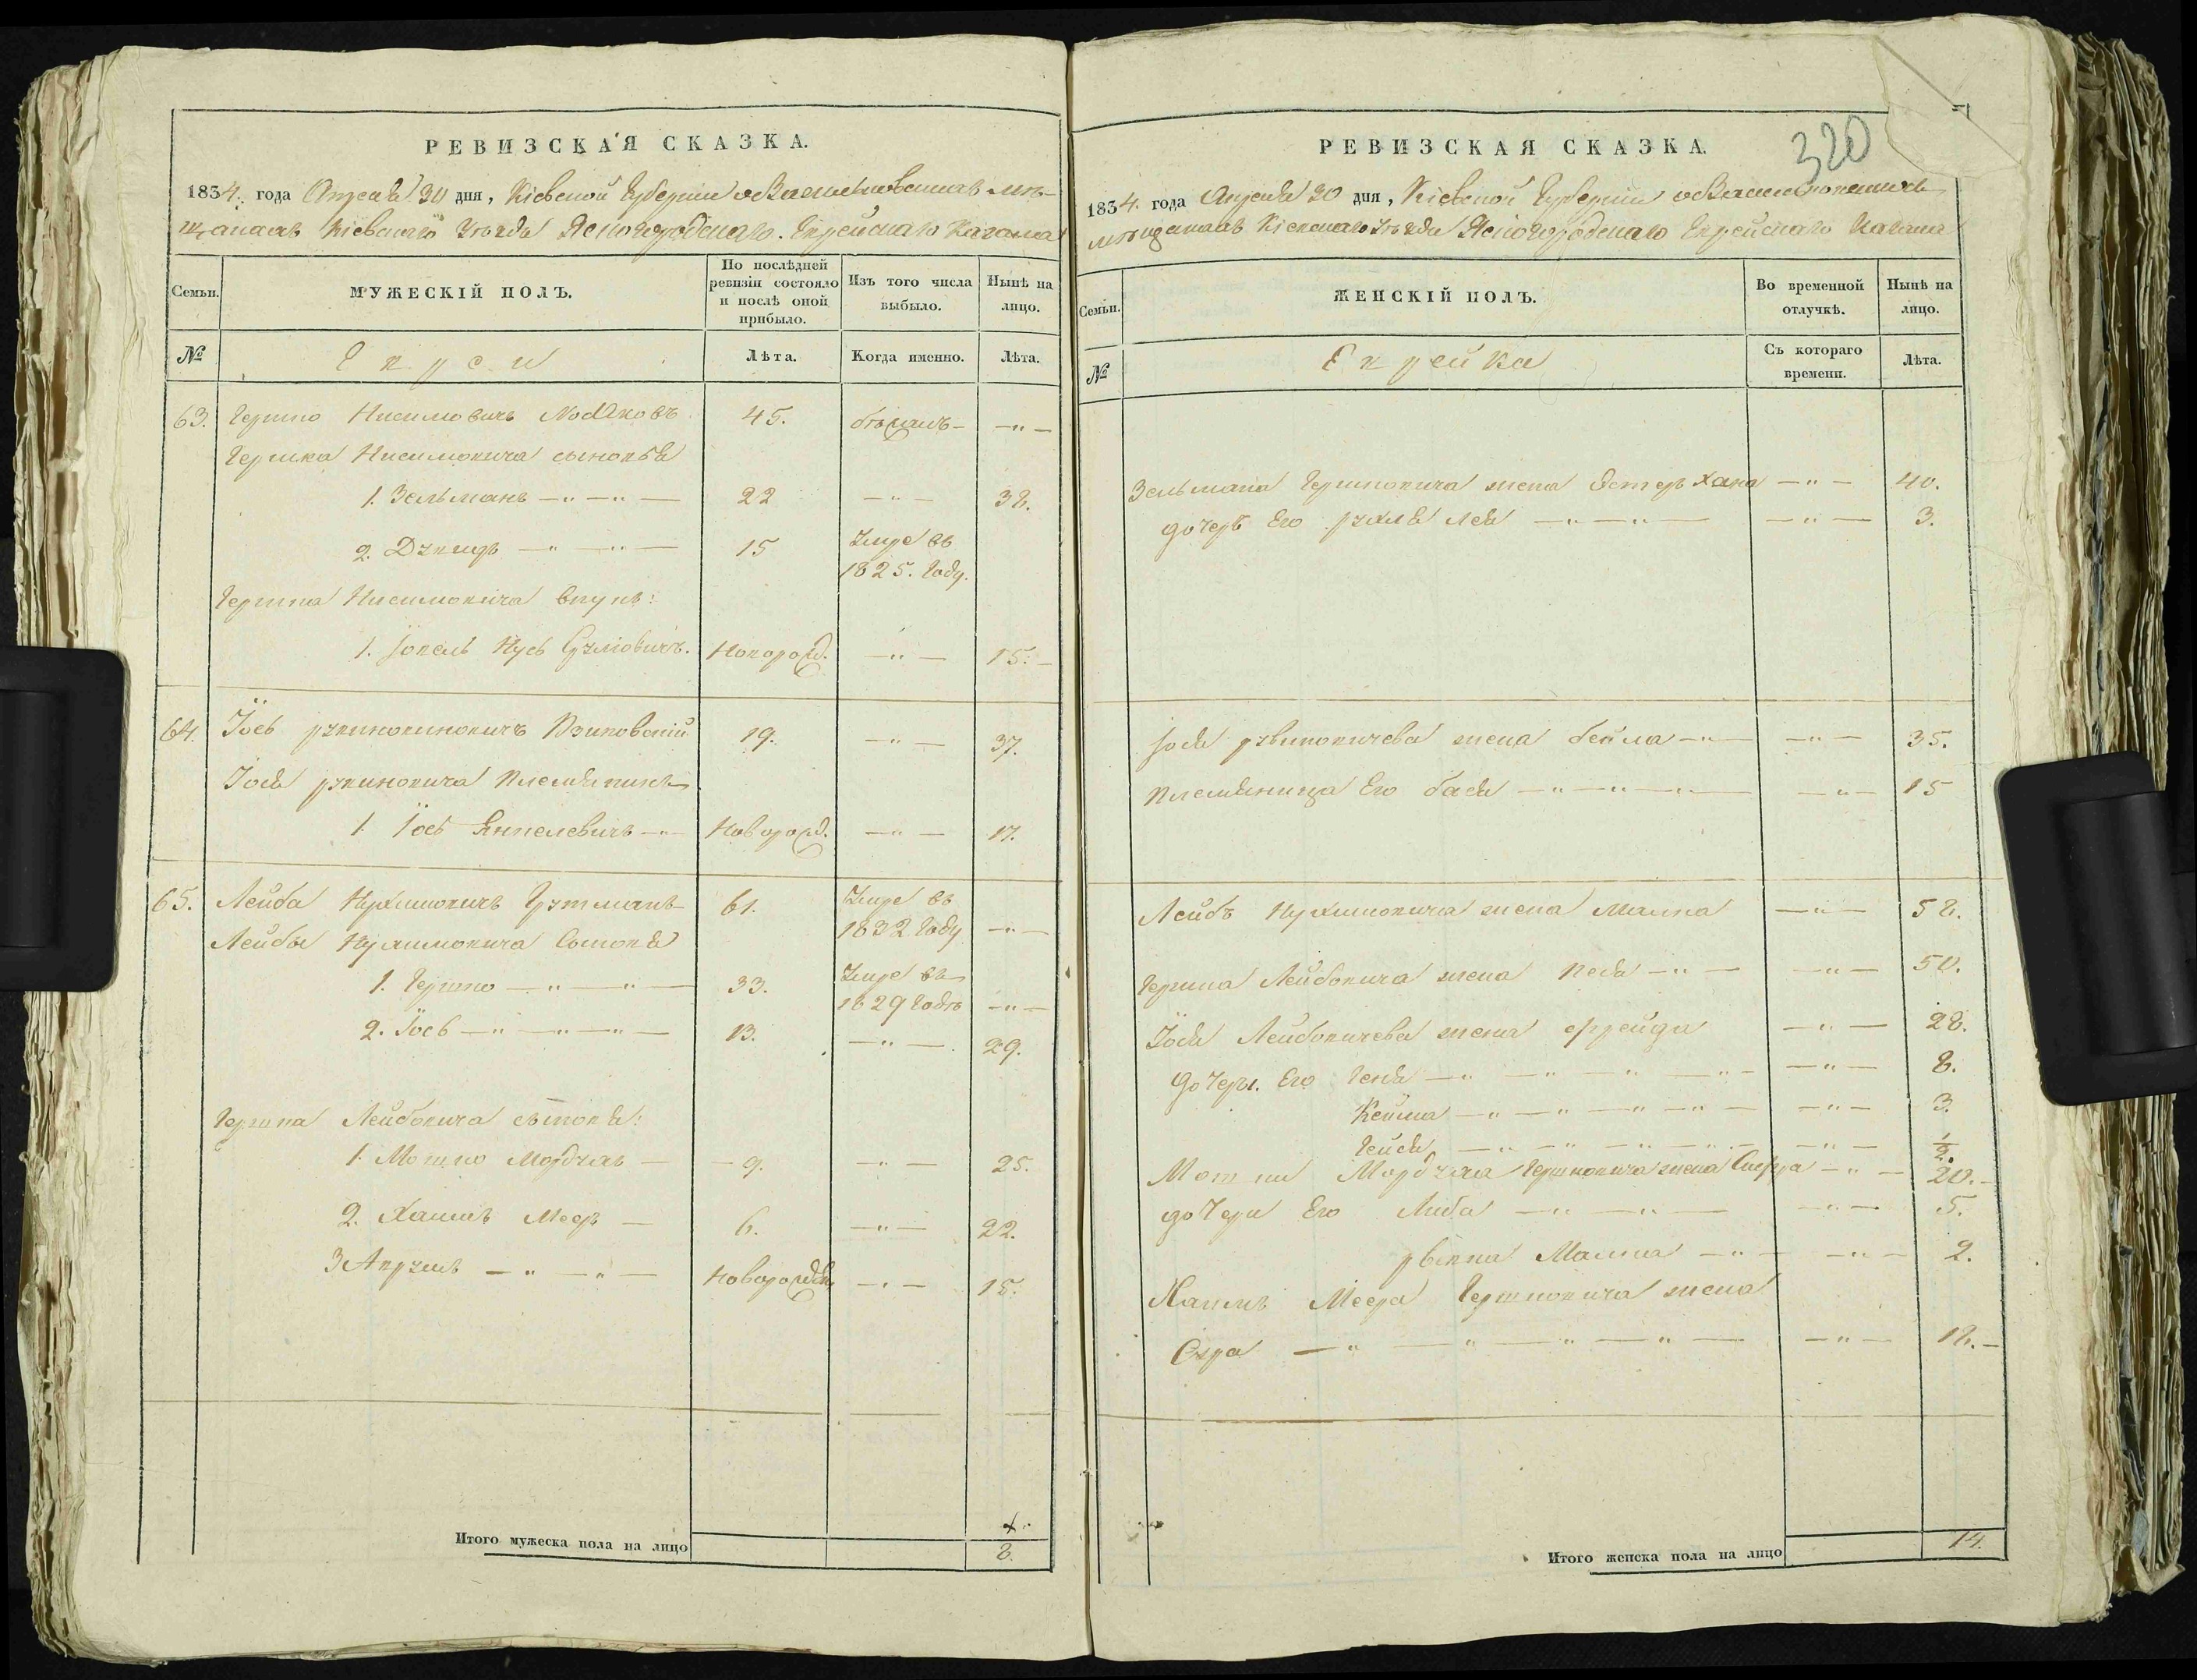 РЕВИЗСКАЯ СКАЗКА.
1834. года Апреля 30 дня, Кіевской Губерніи о Васильковскихъ мѣ-
щанахъ Кіевскаго Уѣзда Ясногородскаго. Еврейскаго Кагала
Семьи.
МУЖЕСКІЙ ПОЛЪ.
По послѣдней ревизіи состояло и послѣ оной прибыло.
Изъ того числа выбыло.
Нынѣ на лицо.
№
Евреи
Лѣта.
Когда именно.
Лѣта.
63. Гершко Нисимовичъ 45. —"—
Гершка Нисимовича сыновья
1. Зельманъ —"—"— 22 —"— 38.
2. Дувидъ —"—"— 15 Умре въ
1825. Году.
Гершка Нисимовича внукъ:
1. Іовель Нусъ Сруліовичъ. Новорожд. —"— 15.—
64. Іось 19. —"— 37.
Іося рувиновича племянникъ
1. Іось Янкелевичъ —"— Новорожд. —"— 17.
65. Лейба Нухимовичъ Гутманъ 61. Умре въ
1832 Году —"—
Лейбы Нухимовича Сыновья
1. Гершко —"—"— 33. Умре въ
1829 Годѣ —"—
2. Іось —"—"—"— 13. —"—. 29.
Гершка Лейбовича сыновья:
1. Мошко Мордхай — 9. —"— 25.
2. Хаимъ Меер — 6. —"— 22.
3 Аврумъ —"—"— Новорожден. —"— 15.
Итого мужеска пола на лицо 8.
РЕВИЗСКАЯ СКАЗКА.
320
1834. года Апреля 30 дня, Кіевской Губерніи о Васильковскихъ
мѣщанахъ Кіевскаго Уѣзда Ясногородскаго Еврейскаго Кагала
Семьи.
ЖЕНСКІЙ ПОЛЪ.
Во временной отлучкѣ.
Нынѣ на лицо.
№
Еврейка
Съ котораго времени.
Лѣта.
Зельмана Гершковича жена Эстеръ Хана —"— 40.
дочеръ Его рухля Лея —"—"— —"— 3.
Іося рувиновичева жена бейла —"— —"— 35.
племянница Его бася —"—"—"— —"— 15
Лейбъ Нухимовича жена Малка —"— 58.
Гершка Лейбовича жена Песя —"— —"— 50.
Іося Лейбовичева жена фрейда —"— 28.
дочеры. Его Геня —"—"—"—"— —"— 8.
Кейла —"—"—"—"— —"— 3.
Гейся —"—"—"—"— —"— ½.
Мошки Мордхая Гершковича жена —"— 20.—
дочери Его Либа —"—"— —"— 5.
рывка Малка —"— —"— 2.
Хаимъ Меера Гершковича жена
Сура —"—"—"—"— —"— 18.—
Итого женска пола на лицо 14.